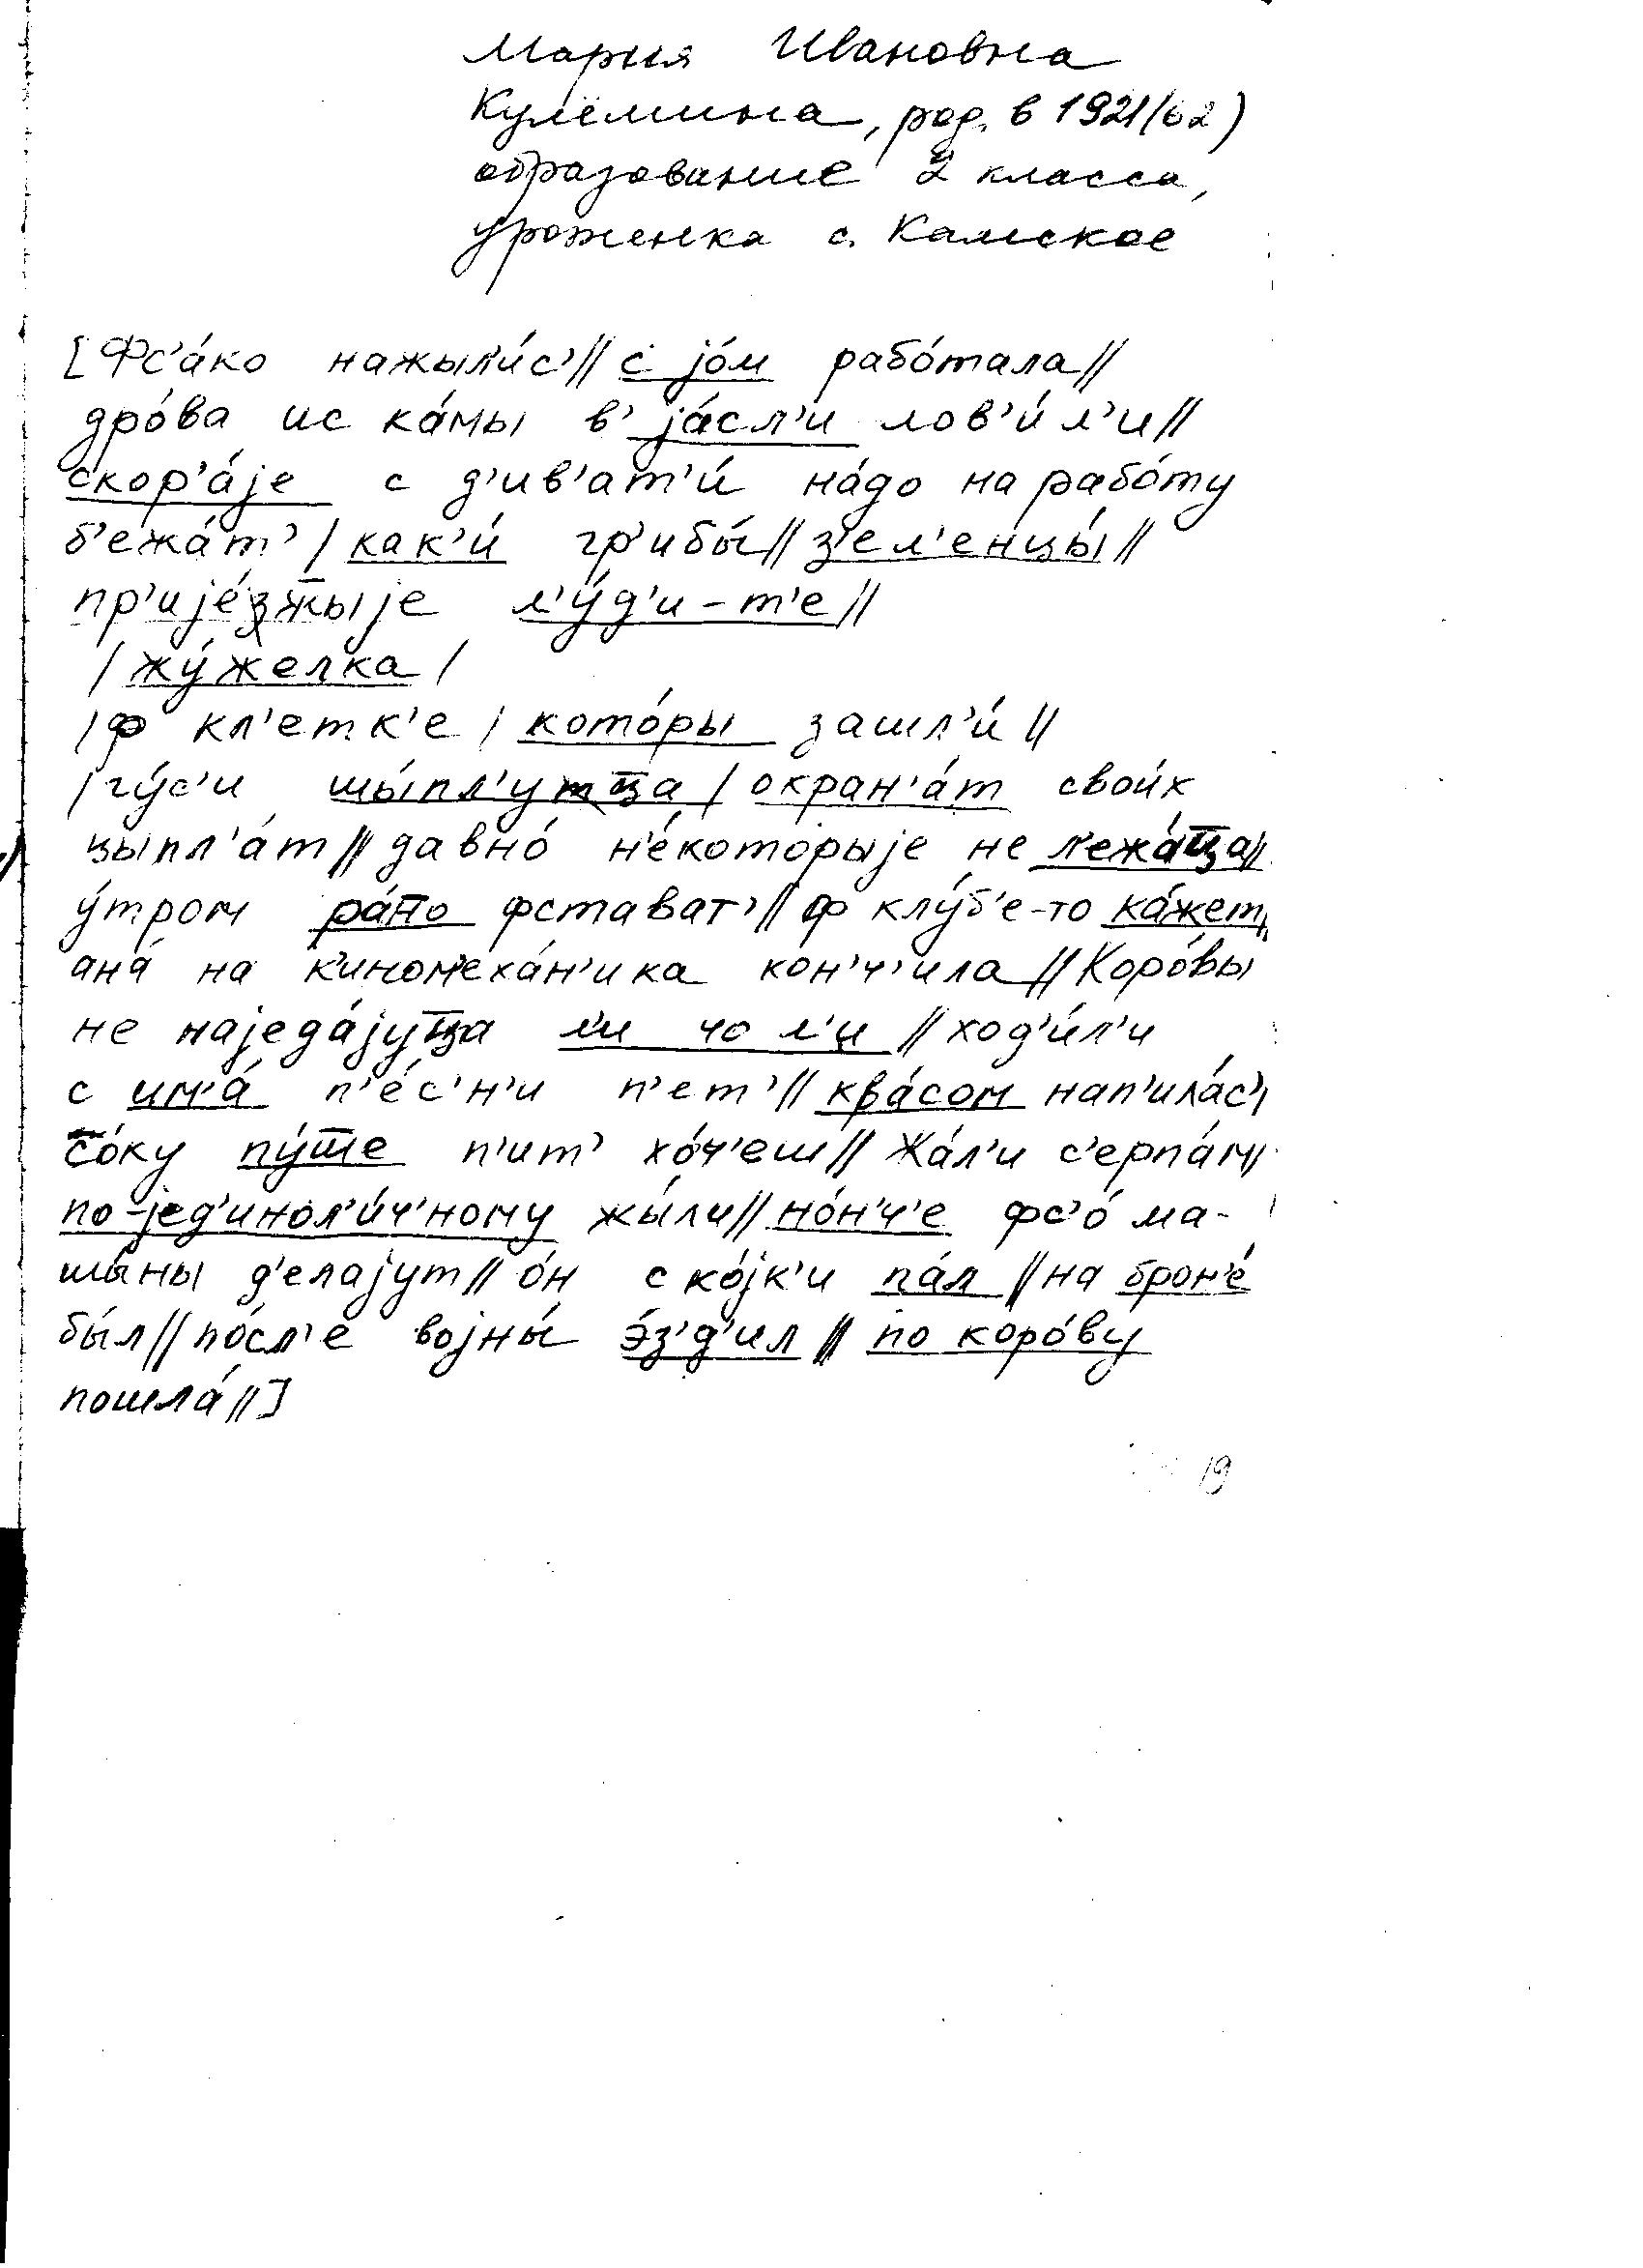 Мария Ивановна
Кулёмина, род. в 1921(62)
образование 2 класса,
уроженка с. Камское
[Фс'а́ко нажыл'и́с'// с jо́м рабо́тала//
дро́ва ис ка́мы в' jа́сл'и лов'и́л'и//
скор'а́jе с д'ив'ат'и́ на́до на рабо́ту
б'ежа́т' / как'и́ гр'ибы́// з'ел'енцы́//
пр'иjе́зжыjе л'у́д'и-т'е//
/ жу́желка /
/ф кл'етк'е / кото́ры зашл'и́ //
/гу́с'и шы́пл'утца / охран'а́т свои́х
цыпл'а́т// давно́ н'е́которыjе не л'ежа́ца//
у́тром ра́но фстават'// ф клу́б'е-то ка́жет//
ана́ на к'ином'еха́н'ика кон'ч'ила// Коро́вы
не наjеда́jуца л'и чо л'и // ход'и́л'и
с им'а́ п'е́с'н'и п'ет'// ква́сом нап'ила́с'/
со́ку пу́ше п'ит' хо́ч'еш// Жа́л'и с'ерпа́м//
по-jед'инол'и́ч'ному жы́ли// но́н'ч'е фс'о́ ма-
шы́ны д'елаjут// о́н с ко́jк'и па́л // на брон'е́
бы́л// по́сл'е воjны́ э́з'д'ил // по коро́ву
пошла́//]
19